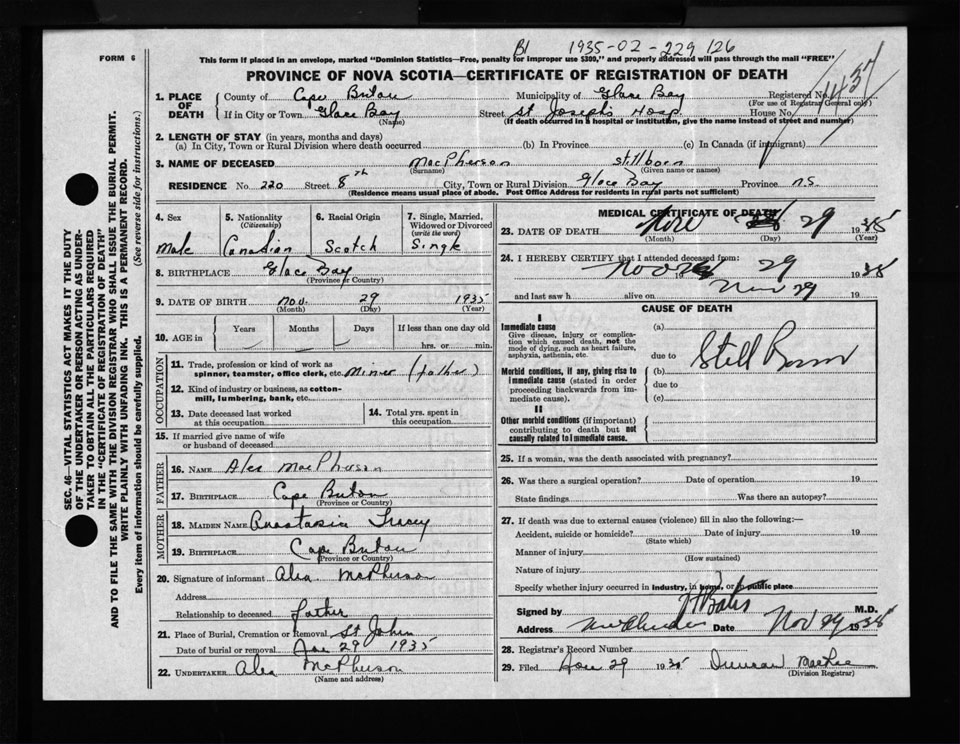 B1 1935-02-229126
FORM 6
This form if placed in an envelope, marked "Dominion Statistics—Free, penalty for improper use $300," and properly addressed will pass through the mail "FREE"
PROVINCE OF NOVA SCOTIA—CERTIFICATE OF REGISTRATION OF DEATH
SEC. 46—VITAL STATISTICS ACT MAKES IT THE DUTY
OF THE UNDERTAKER OR PERSON ACTING AS UNDER-
TAKER TO OBTAIN ALL THE PARTICULARS REQUIRED
IN THE "CERTIFICATE OF REGISTRATION OF DEATH"
AND TO FILE THE SAME WITH THE DIVISION REGISTRAR WHO SHALL ISSUE THE BURIAL PERMIT.
WRITE PLAINLY WITH UNFADING INK. THIS IS A PERMANENT RECORD.
Every item of information should be carefully supplied. (See reverse side for instructions.)
1. PLACE OF DEATH County of Cape Breton Municipality of Glace Bay Registered No. 437
(For use of Registrar General only)
If in City or Town Glace Bay Street St Joseph's Hosp House No.
(Name) (If death occurred in a hospital or institution, give the name instead of street and number)
2. LENGTH OF STAY (in years, months and days)
(a) In City, Town or Rural Division where death occurred (b) In Province (c) In Canada (if immigrant)
3. NAME OF DECEASED MacPherson stillborn
(Surname) (Given name or names)
RESIDENCE No. 220 Street 8th City, Town or Rural Division Glace Bay Province N.S.
(Residence means usual place of abode. Post Office Address for residents in rural parts not sufficient)
4. Sex Male
5. Nationality (Citizenship) Canadian
6. Racial Origin Scotch
7. Single, Married, Widowed or Divorced (write the word) Single
8. BIRTHPLACE Glace Bay
(Province or Country)
9. DATE OF BIRTH Nov. 29 1935
(Month) (Day) (Year)
10. AGE in Years Months Days If less than one day old
hrs. or min.
OCCUPATION
11. Trade, profession or kind of work as
spinner, teamster, office clerk, etc. Miner (father)
12. Kind of industry or business, as cotton-
mill, lumbering, bank, etc.
13. Date deceased last worked
at this occupation
14. Total yrs. spent in
this occupation
15. If married give name of wife
or husband of deceased
FATHER
16. NAME Alex MacPherson
17. BIRTHPLACE Cape Breton
(Province or Country)
MOTHER
18. MAIDEN NAME Anastasia Tracey
19. BIRTHPLACE Cape Breton
(Province or Country)
20. Signature of informant Alex McPherson
Address
Relationship to deceased father
21. Place of Burial, Cremation or Removal St John
Date of burial or removal 29 1935
22. UNDERTAKER Alex McPherson
(Name and address)
MEDICAL CERTIFICATE OF DEATH
23. DATE OF DEATH Nov 29 1935
(Month) (Day) (Year)
24. I HEREBY CERTIFY that I attended deceased from:
Nov 29 19 29 1935
and last saw h alive on Nov 29 19
CAUSE OF DEATH
I
Immediate cause
Give disease, injury or complica-
tion which caused death, not the
mode of dying, such as heart failure,
asphyxia, asthenia, etc.
(a)
due to
Still Born
Morbid conditions, if any, giving rise to
immediate cause (stated in order
proceeding backwards from im-
mediate cause).
(b)
due to
(c)
II
Other morbid conditions (if important)
contributing to death but not
causally related to immediate cause.
25. If a woman, was the death associated with pregnancy?
26. Was there a surgical operation? Date of operation 19
State findings Was there an autopsy?
27. If death was due to external causes (violence) fill in also the following:—
Accident, suicide or homicide? Date of injury 19
(State which)
Manner of injury
(How sustained)
Nature of injury
Specify whether injury occurred in industry, in home, or in public place
Signed by M.D.
Address Date Nov 29 1935
28. Registrar's Record Number
29. Filed 29 1935 Duncan MacRae
(Division Registrar)